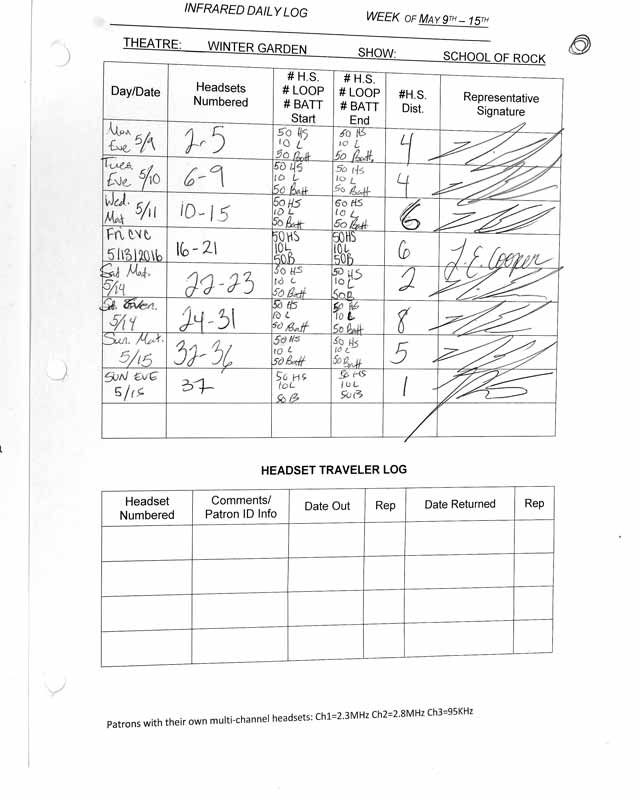 INFRARED DAILY LOG WEEK OF MAY 9TH – 15TH
THEATRE: WINTER GARDEN SHOW: SCHOOL OF ROCK
Day/Date Headsets Numbered # H.S. # LOOP # BATT Start # H.S. # LOOP # BATT End #H.S. Dist. Representative Signature
Mon Eve 5/9 2-5 50 HS 10 L 50 Batt 50 HS 10 L 50 Batt. 4
Tues Eve 5/10 6-9 50 HS 10 L 50 Batt 50 HS 10 L 50 Batt 4
Wed. Mat 5/11 10-15 50 HS 10 L 50 Batt 50 HS 10 L 50 Batt 6
Fri eve 5/13/2016 16-21 50HS 10L 50B 50HS 10L 50B 6 J.E. Cooper
Sat Mat. 5/14 22-23 50 HS 10 L 50 Batt 50 HS 10 L 50B 2
5/14 24-31 50 HS 10 L 50 Batt 50 HS 10 L 50 Batt 8
Sun. Mat. 5/15 32-36 50 HS 10 L 50 Batt 50 HS 10 L 50 Batt 5
SUN EVE 5/15 37 50 HS 10L 50 B 50 HS 10L 50B 1
HEADSET TRAVELER LOG
Headset Numbered Comments/ Patron ID Info Date Out Rep Date Returned Rep
Patrons with their own multi-channel headsets: Ch1=2.3MHz Ch2=2.8MHz Ch3=95KHz